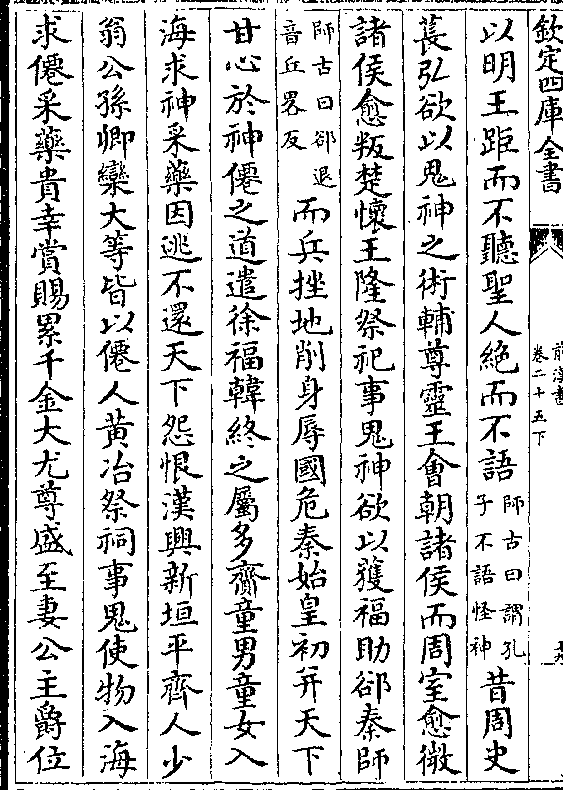 欽定四庫全書
前漢書
卷二十五下
以明王距而不聽聖人絶而不語師古曰謂孔子不語怪神昔周史
萇弘欲以鬼神之術輔尊靈王會朝諸侯而周室愈微
諸侯愈叛楚懷王隆祭祀事鬼神欲以獲福助郤秦師
師古曰郤退音丘畧反而兵挫地削身辱國危秦始皇初并天下
甘心於神僊之道遣徐福韓終之屬多齎童男童女入
海求神采藥因逃不還天下怨恨漢興新垣平齊人少
翁公孫卿欒大等皆以僊人黃冶祭祠事鬼使物入海
求僊采藥貴幸賞賜累千金大尤尊盛至妻公主爵位